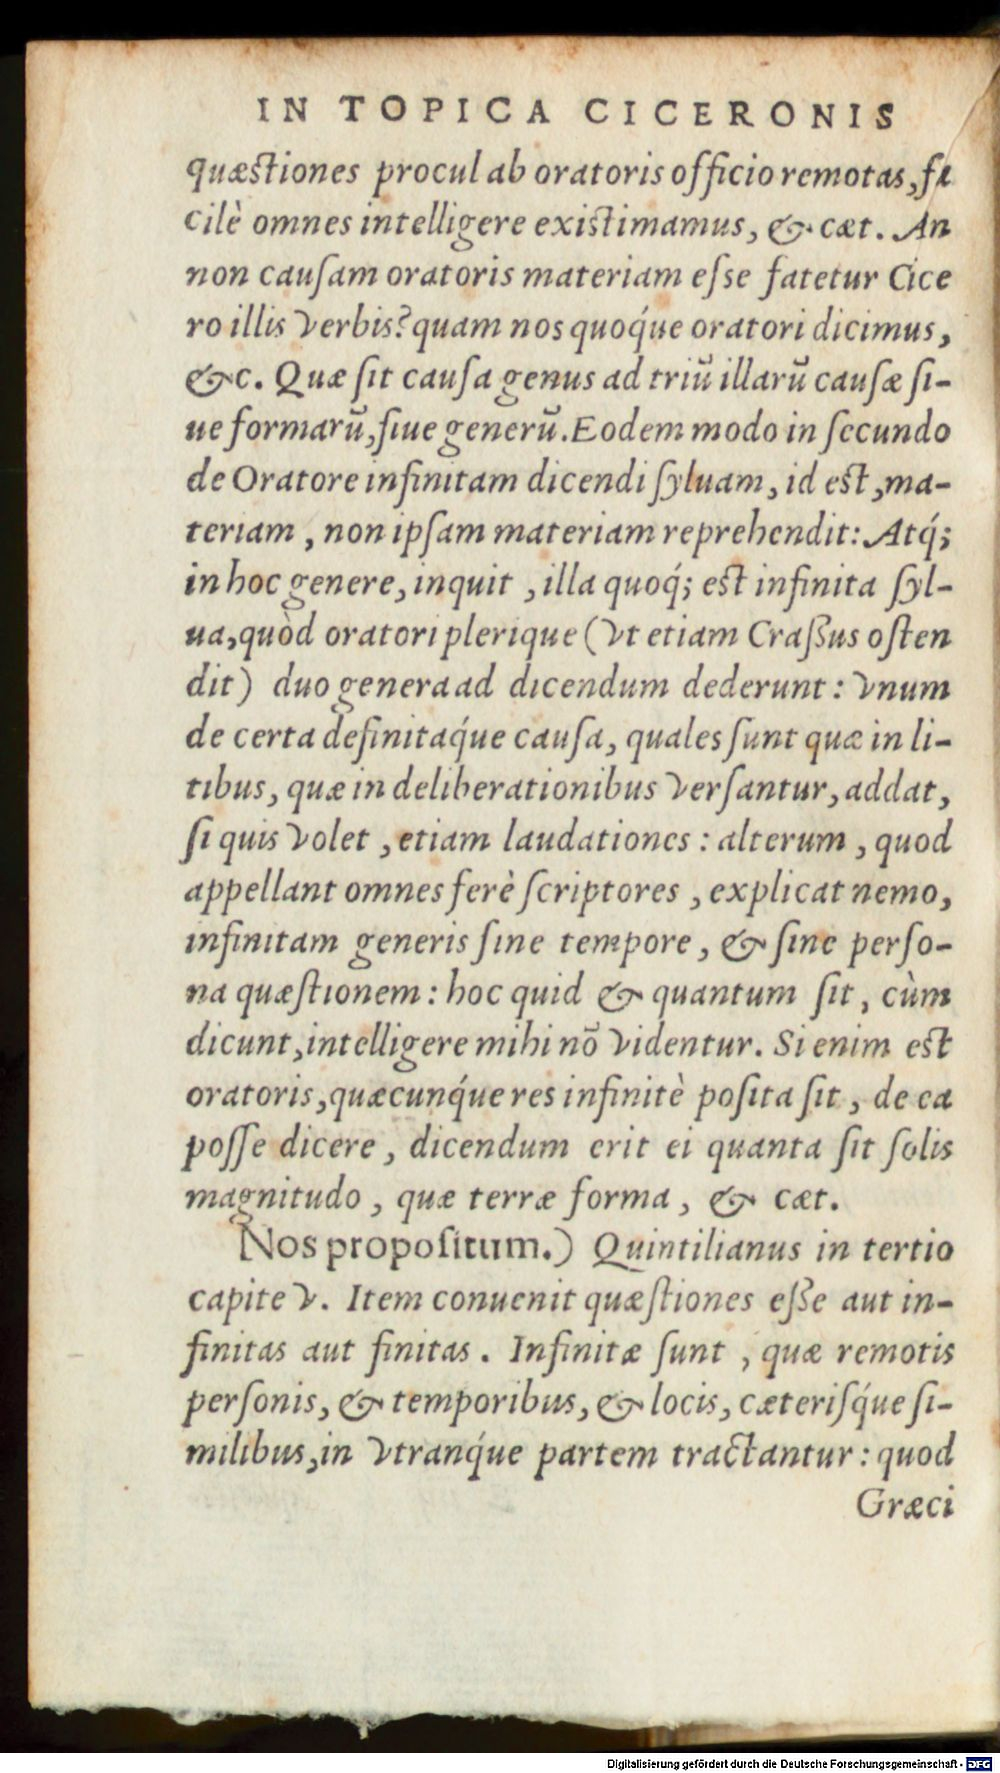 IN TOPICA CICERONIS
quæstiones procul ab oratoris officio remotas, fa
cilè omnes intelligere existimamus, & cæt. An
non causam oratoris materiam esse fatetur Cice
ro illis verbis? quam nos quoq́ue oratori dicimus,
&c. Quæ sit causa genus ad triũ illarũ causæ si-
ue formarũ, siue generũ. Eodem modo in secundo
de Oratore infinitam dicendi syluam, id est, ma-
teriam, non ipsam materiam reprehendit: Atq́;
in hoc genere, inquit, illa quoq́; est infinita syl-
ua, quòd oratori plerique (vt etiam Crassus osten
dit) duo genera ad dicendum dederunt: vnum
de certa definitaq́ue causa, quales sunt quæ in li-
tibus, quæ in deliberationibus versantur, addat,
si quis volet, etiam laudationes: alterum, quod
appellant omnes ferè scriptores, explicat nemo,
infinitam generis sine tempore, & sine perso-
na quæstionem: hoc quid & quantum sit, cùm
dicunt, intelligere mihi nō videntur. Si enim est
oratoris, quæcunq́ue res infinitè posita sit, de ea
posse dicere, dicendum erit ei quanta sit solis
magnitudo, quæ terræ forma, & cæt.
Nos propositum.) Quintilianus in tertio
capite v. Item conuenit quæstiones esse aut in-
finitas aut finitas. Infinitæ sunt, quæ remotis
personis, & temporibus, & locis, cæterisq́ue si-
milibus, in vtranq́ue partem tractantur: quod
Græci
Digitalisierung gefördert durch die Deutsche Forschungsgemeinschaft - DFG